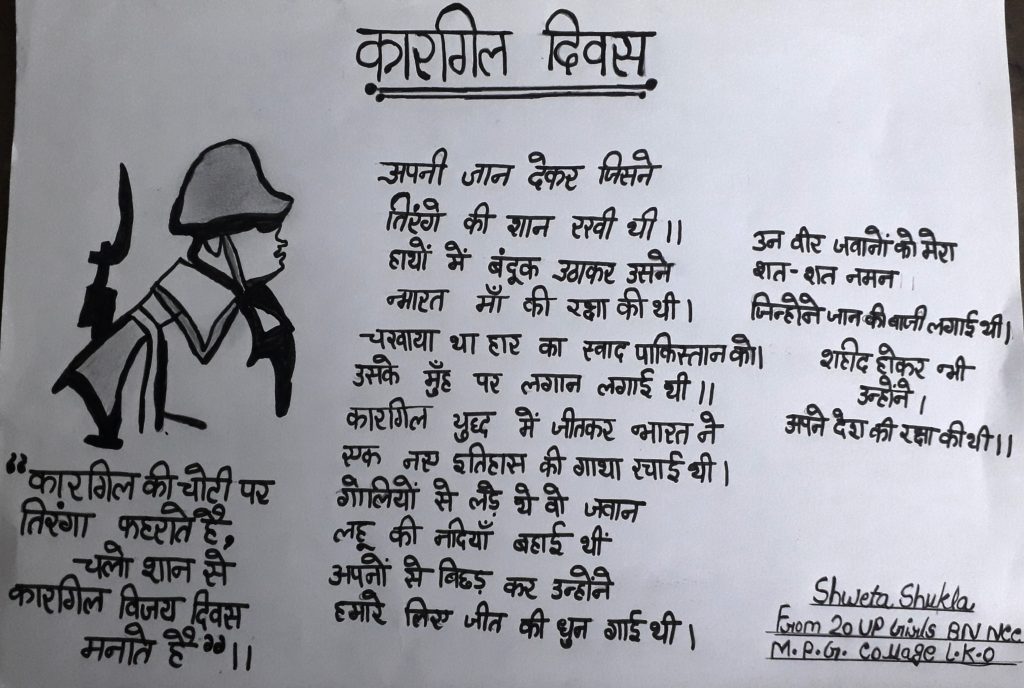 कारगिल दिवस
अपनी जान देकर जिसने
तिरंगे की शान रखी थी।।
हाथों में बंदूक उठाकर उसने
भारत माँ की रक्षा की थी।
चखाया था हार का स्वाद पाकिस्तान को।
उसके मुँह पर लगान लगाई थी।।
कारगिल युध्द में जीतकर भारत ने
एक नए इतिहास की गाथा रचाई थी।
गोलियों से लड़े थे वो जवान
लहू की नदियाँ बहाई थीं
अपनों से बिछड़ कर उन्होंने
हमारे लिए जीत की धुन गाई थी।
उन वीर जवानों को मेरा
शत-शत नमन
जिन्होंने जान की बाजी लगाई थी।
शहीद होकर भी
उन्होंने।
अपने देश की रक्षा की थी।।
"कारगिल की चोटी पर
तिरंगा फहराते है,
चलो शान से
कारगिल विजय दिवस
मनाते है"।।
Shweta Shukla
From 20 UP Girls BN NCC
M.P.G. College L.K.O